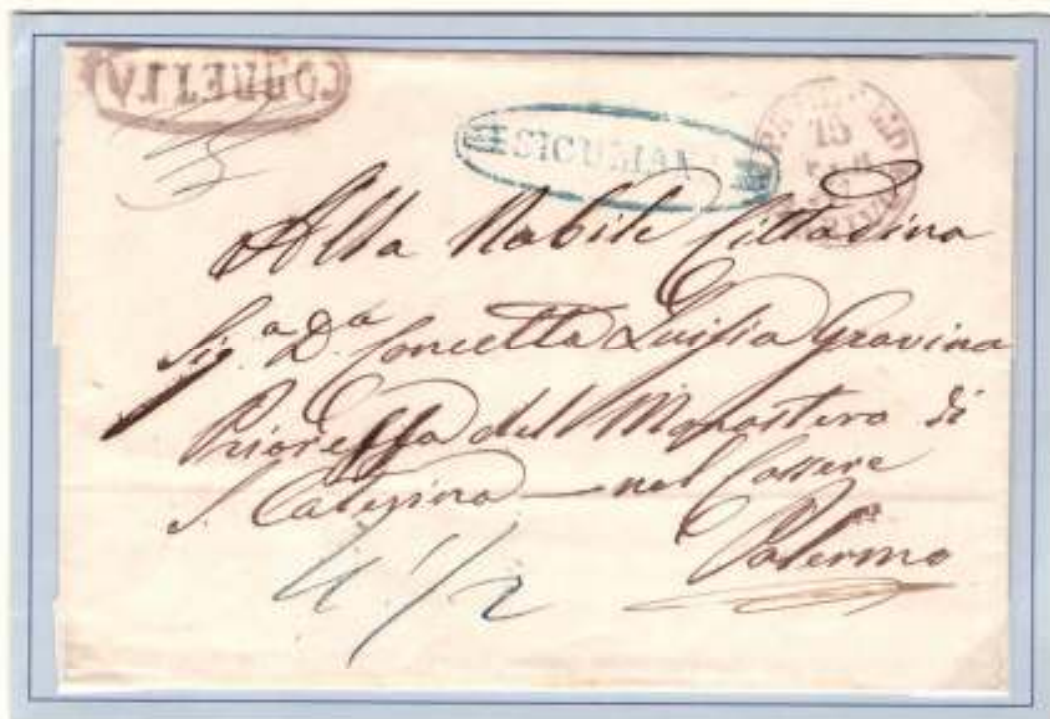 CORRETTA
SICULIANA
15
Alla Nabile Cittadina
Sig.a D.a Concetta Luisia Gravina
Prioressa del Monastero di
S. Caterina — nel Cassere
Palermo
4 1/2